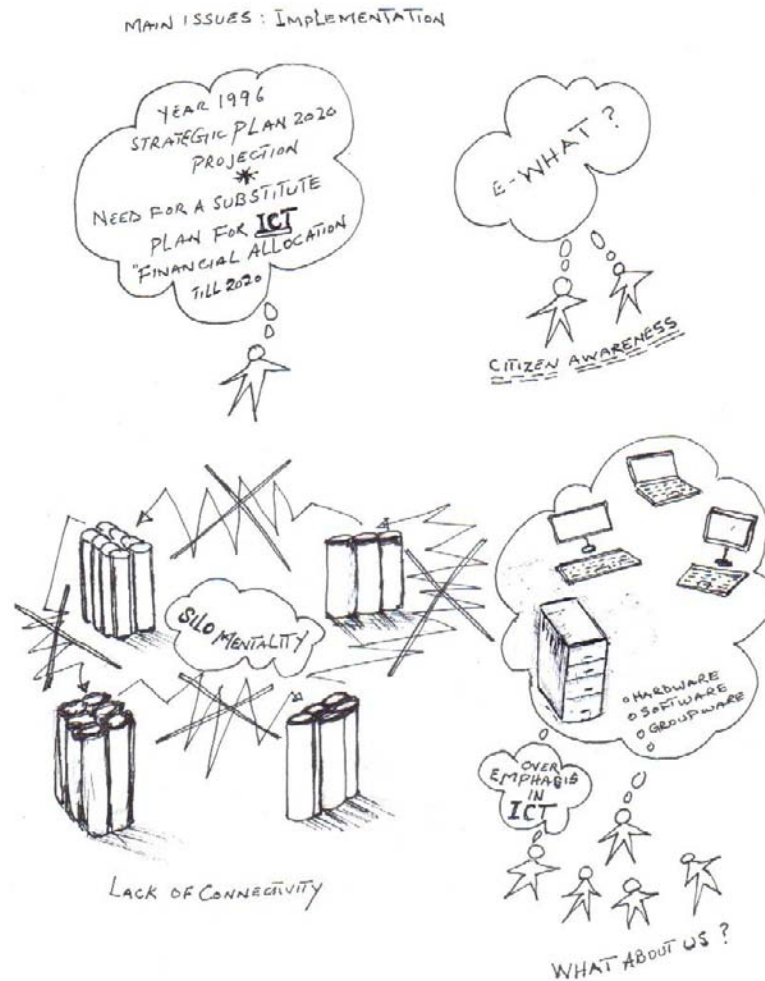 MAIN ISSUES: IMPLEMENTATION
YEAR 1996
STRATEGIC PLAN 2020
PROJECTION
*
NEED FOR A SUBSTITUTE
PLAN FOR ICT
"FINANCIAL ALLOCATION
TILL 2020
E-WHAT?
CITIZEN AWARENESS
SILO MENTALITY
LACK OF CONNECTIVITY
HARDWARE
SOFTWARE
GROUPWARE
OVER
EMPHASIS
IN
ICT
WHAT ABOUT US?